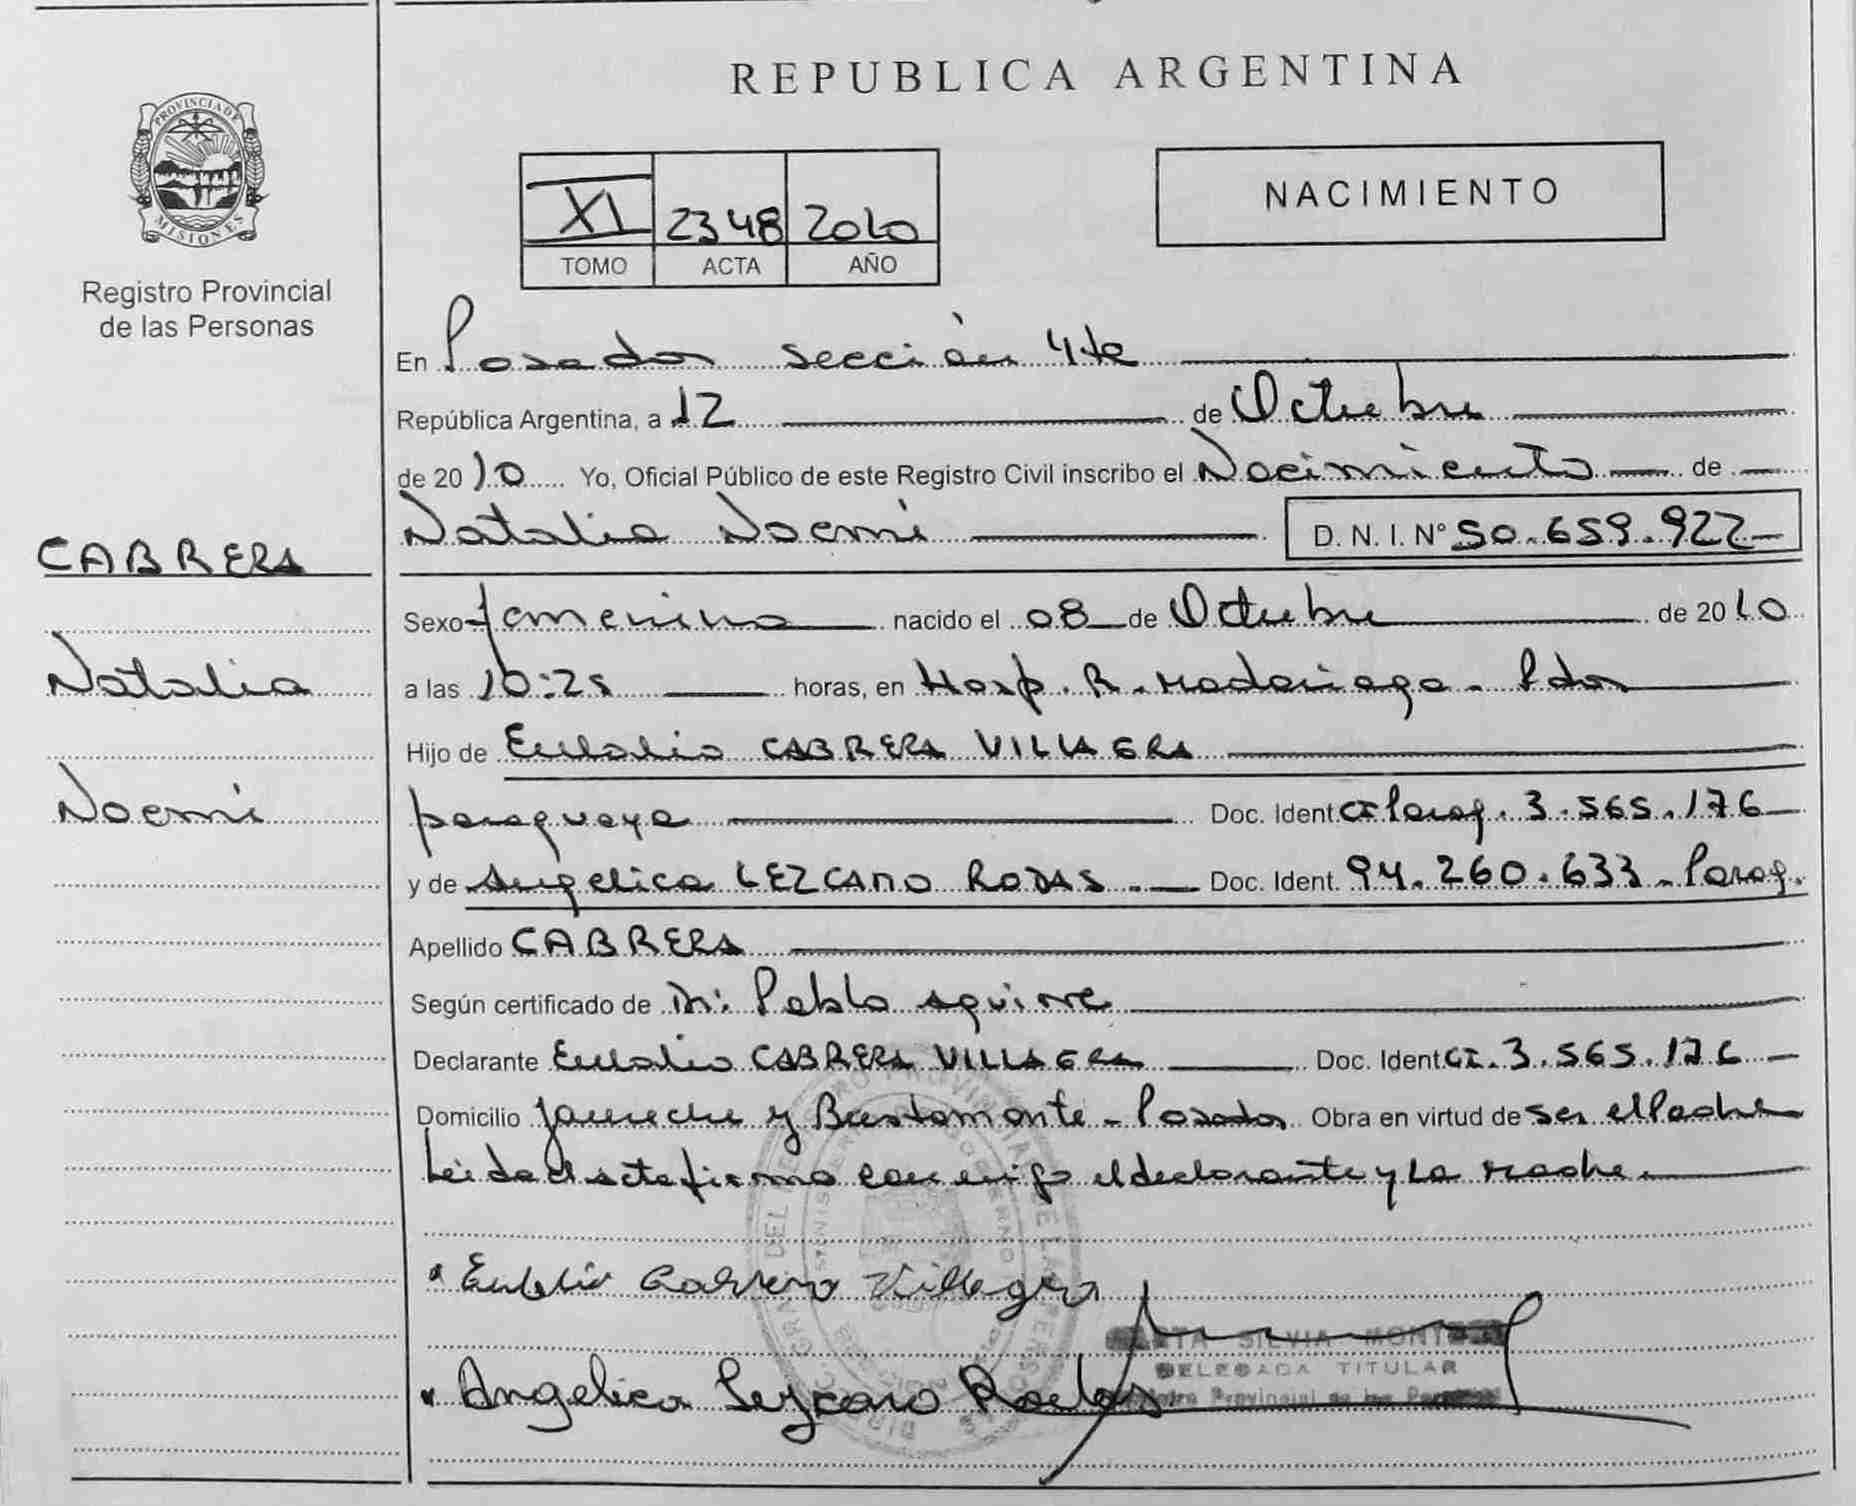 REPUBLICA ARGENTINA
PROVINCIA DE MISIONES
Registro Provincial
de las Personas
XI 2348 2010
TOMO ACTA AÑO
NACIMIENTO
En Posadas sección 4ta
República Argentina, a 12 de Octubre
de 2010 Yo, Oficial Público de este Registro Civil inscribo el Nacimiento de
Natalia Noemi D. N. I. Nº 50.659.922
CABRERA
Natalia
Noemi
Sexo femenino nacido el 08 de Octubre de 2010
a las 10:25 horas, en Hosp. R. Madariaga - Pdas
Hijo de Eulalio CABRERA VILLAGRA
paraguaya Doc. Ident. CI Parag. 3.565.176
y de Angelica LEZCANO RODAS Doc. Ident. 94.260.633 - Parag.
Apellido CABRERA
Según certificado de Dr: Pablo Aguirre
Declarante Eulalio CABRERA VILLAGRA Doc. Ident. CI. 3.565.176
Domicilio Jauretche y Bustamante - Posadas Obra en virtud de ser el Padre
Leida el acta firma conmigo el declarante y la madre.
Eulalio Cabrera Villagra
SILVIA
DELEGADA TITULAR
Provincial de las Personas
Angelica Lezcano Rodas